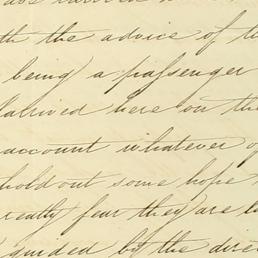 th the advice of
being a passenger
arrived here on the
account whatever of
hold out some hope
really fear they are
guided by the